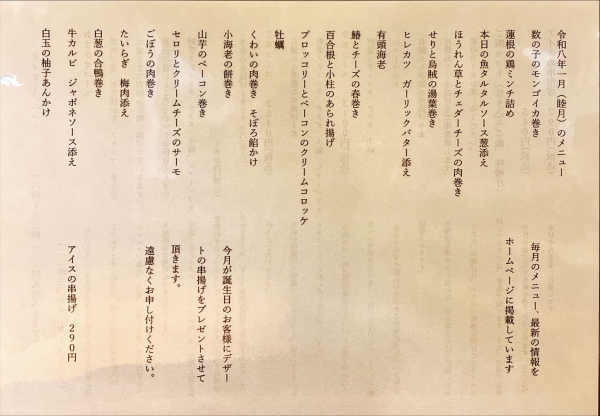 令和八年一月（睦月）のメニュー
数の子のモンゴイカ巻き
蓮根の鶏ミンチ詰め
本日の魚タルタルソース葱添え
ほうれん草とチェダーチーズの肉巻き
せりと烏賊の湯葉巻き
ヒレカツ　ガーリックバター添え
有頭海老
鰆とチーズの春巻き
百合根と小柱のあられ揚げ
ブロッコリーとベーコンのクリームコロッケ
牡蠣
くわいの肉巻き　そぼろ餡かけ
小海老の餅巻き
山芋のベーコン巻き
セロリとクリームチーズのサーモ
ごぼうの肉巻き
たいらぎ　梅肉添え
白葱の合鴨巻き
牛カルビ　ジャポネソース添え
白玉の柚子あんかけ
毎月のメニュー、最新の情報を
ホームページに掲載しています
今月が誕生日のお客様にデザー
トの串揚げをプレゼントさせて
頂きます。
遠慮なくお申し付けください。
アイスの串揚げ　290円